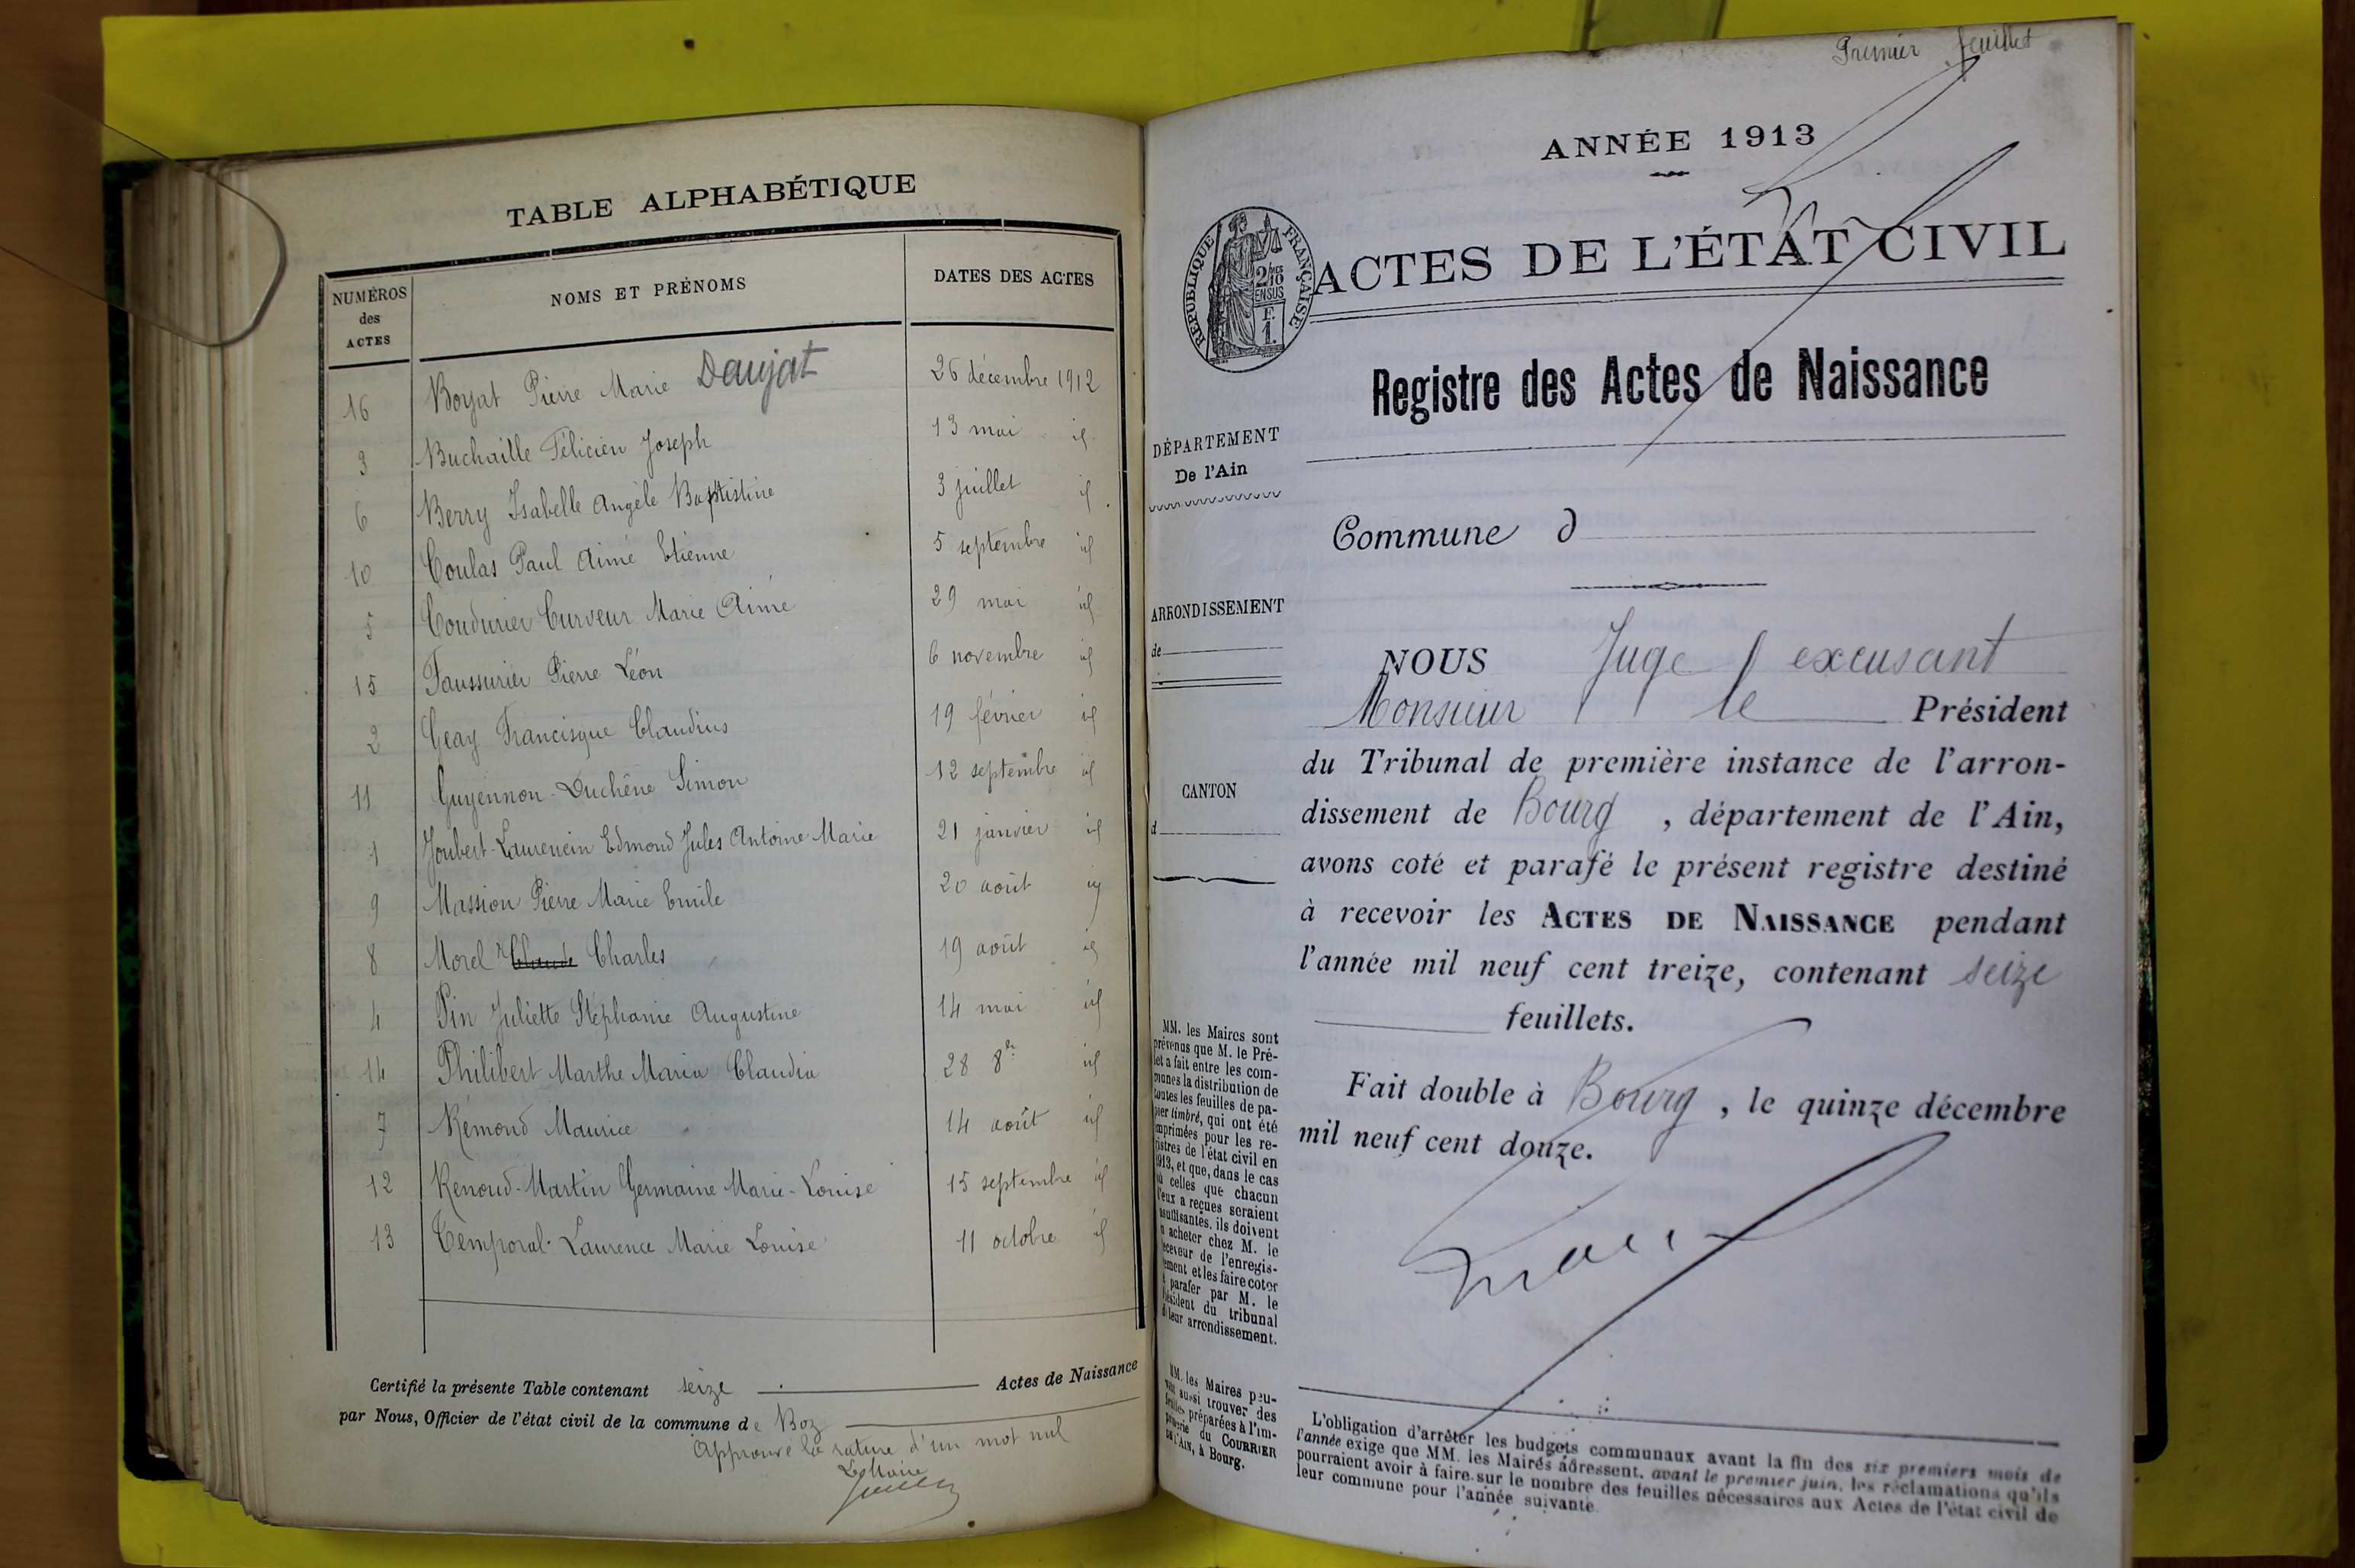 TABLE ALPHABÉTIQUE
NUMÉROS
des
ACTES
NOMS ET PRÉNOMS
DATES DES ACTES
16 Boyat Pierre Marie Daujat 26 décembre 1912
3 Buchaille Félicien Joseph 13 mai id
6 Berry Isabelle Angèle Baptistine 3 juillet id
10 Coulas Paul Aimé Etienne 5 septembre id
5 Coudurier Curveur Marie Aimé 29 mai id
15 Faussurier Pierre Léon 6 novembre id
2 Geay Francisque Claudius 19 février id
11 Guyennon-Duchêne Simon 12 septembre id
1 Joubert-Laurencin Edmond Jules Antoine Marie 21 janvier id
9 Massion Pierre Marie Emile 20 août id
8 Morel Claude Charles 19 août id
4 Pin Juliette Stéphanie Augustine 14 mai id
14 Philibert Marthe Maria Claudia 28 8re id
7 Rémond Maurice 14 août id
12 Renoud-Martin Germaine Marie-Louise 15 septembre id
13 Temporal Laurence Marie Louise 11 octobre id
Certifié la présente Table contenant seize Actes de Naissance
par Nous, Officier de l'état civil de la commune de Boz
Approuvé la rature d'un mot nul
Le Maire
Premier feuillet
ANNÉE 1913
RÉPUBLIQUE FRANÇAISE
2/10
EN SUS
F.
1.
ACTES DE L'ÉTAT CIVIL
Registre des Actes de Naissance
DÉPARTEMENT
De l'Ain
Commune d
ARRONDISSEMENT
de
CANTON
d
NOUS Juge excusant
Monsieur le Président
du Tribunal de première instance de l'arron-
dissement de Bourg, département de l'Ain,
avons coté et parafé le présent registre destiné
à recevoir les ACTES DE NAISSANCE pendant
l'année mil neuf cent treize, contenant seize
feuillets.
Fait double à Bourg, le quinze décembre
mil neuf cent douze.
MM. les Maires sont
prévenus que M. le Pré-
fet a fait entre les com-
munes la distribution de
toutes les feuilles de pa-
pier timbré, qui ont été
imprimées pour les re-
gistres de l'état civil en
1913, et que, dans le cas
où celles que chacun
d'eux a reçues seraient
insuffisantes, ils doivent
en acheter chez M. le
receveur de l'enregis-
trement et les faire coter
et parafer par M. le
Président du tribunal
de leur arrondissement.
MM. les Maires peu-
vent aussi trouver des
feuilles préparées à l'im-
primerie du COURRIER
DE L'AIN, à Bourg.
L'obligation d'arrêter les budgets communaux avant la fin des six premiers mois de
l'année exige que MM. les Maires adressent, avant le premier juin, les réclamations qu'ils
pourraient avoir à faire sur le nombre des feuilles nécessaires aux Actes de l'état civil de
leur commune pour l'année suivante.